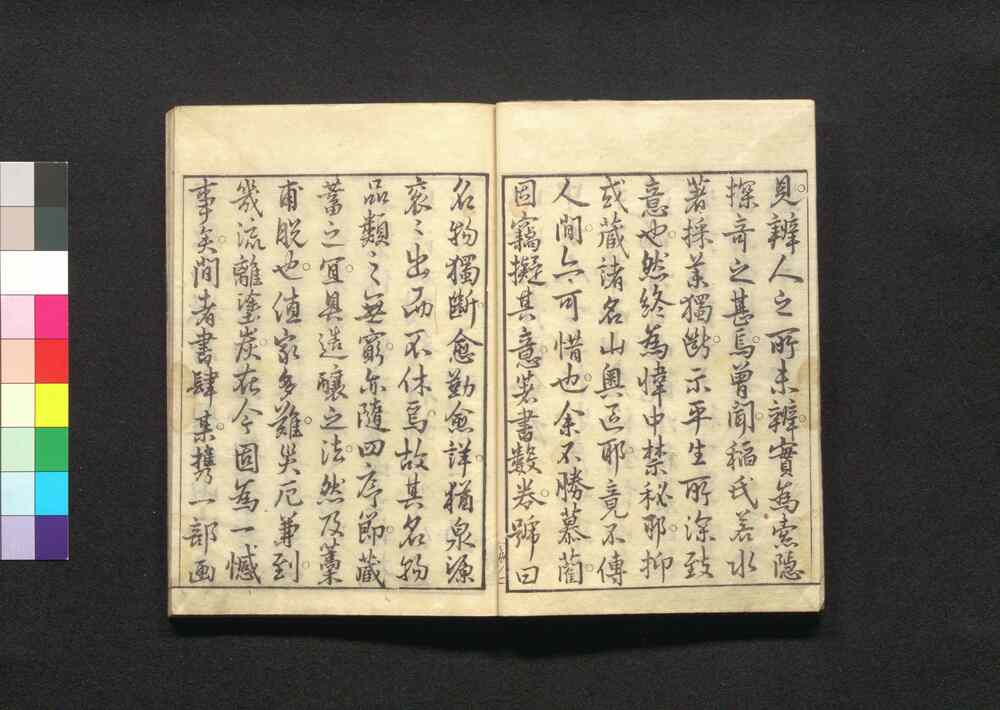 見辨人之所未辨實為索隱
探奇之甚焉曽聞稲氏若水
著採薬獨断示平生所深致
意也然終為幃中禁秘耶抑
或蔵諸名山奥區耶竟不傳
人間亦可惜也余不勝慕藺
因竊擬其意著書數巻號曰
名物獨斷愈勤愈詳猶泉源
衮〻出而不休焉故其名物
品類之無窮亦隨四序節蔵
蓄之宜具造釀之法然及藁
甫脱也値家多難災厄兼到
幾流離塗炭在今固為一憾
事矣間者書肆某携一部画